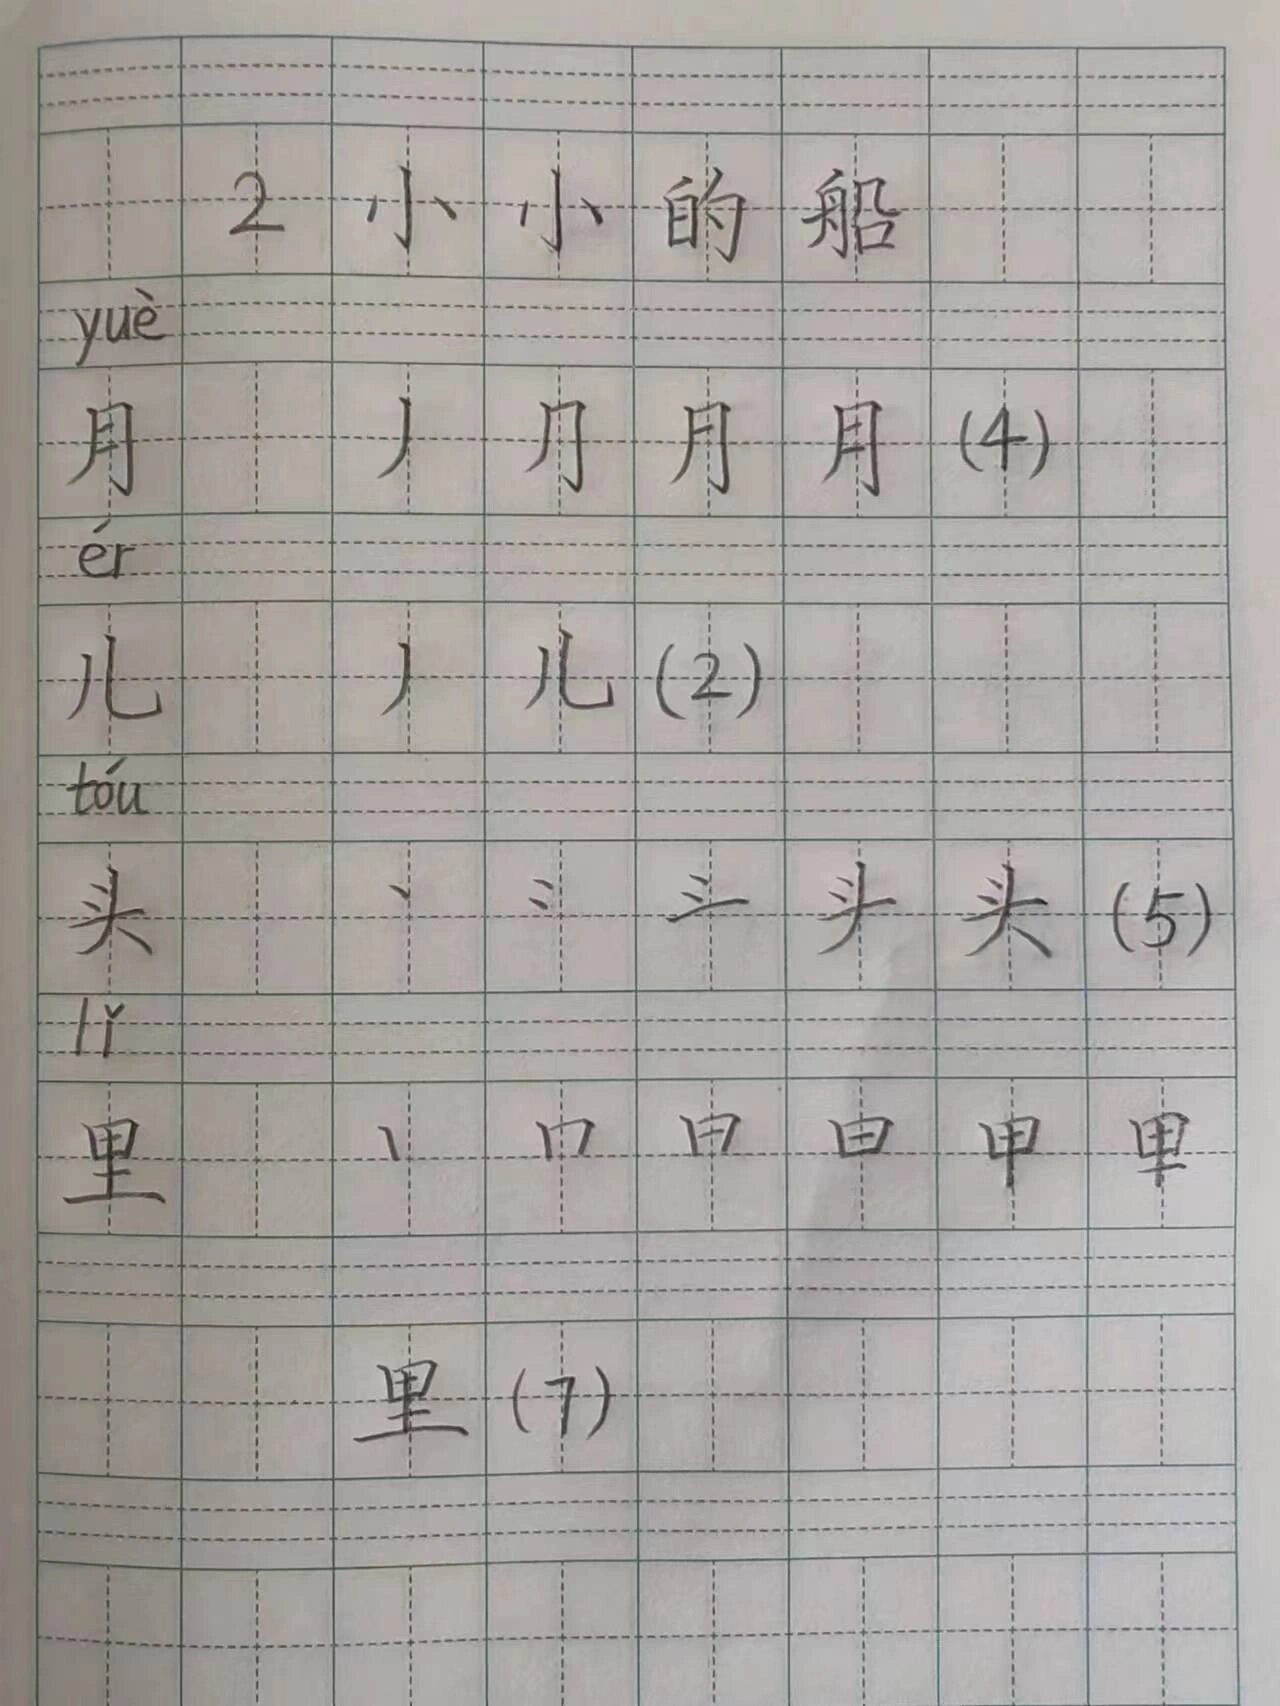 2 小小的船
yuè
月 丿 ⺆ 月 月 (4)
ér
儿 丿 儿 (2)
tóu
头 丶 ⺀ 头 头 (5)
lǐ
里 丨 冂 日 甲 里
里 (7)